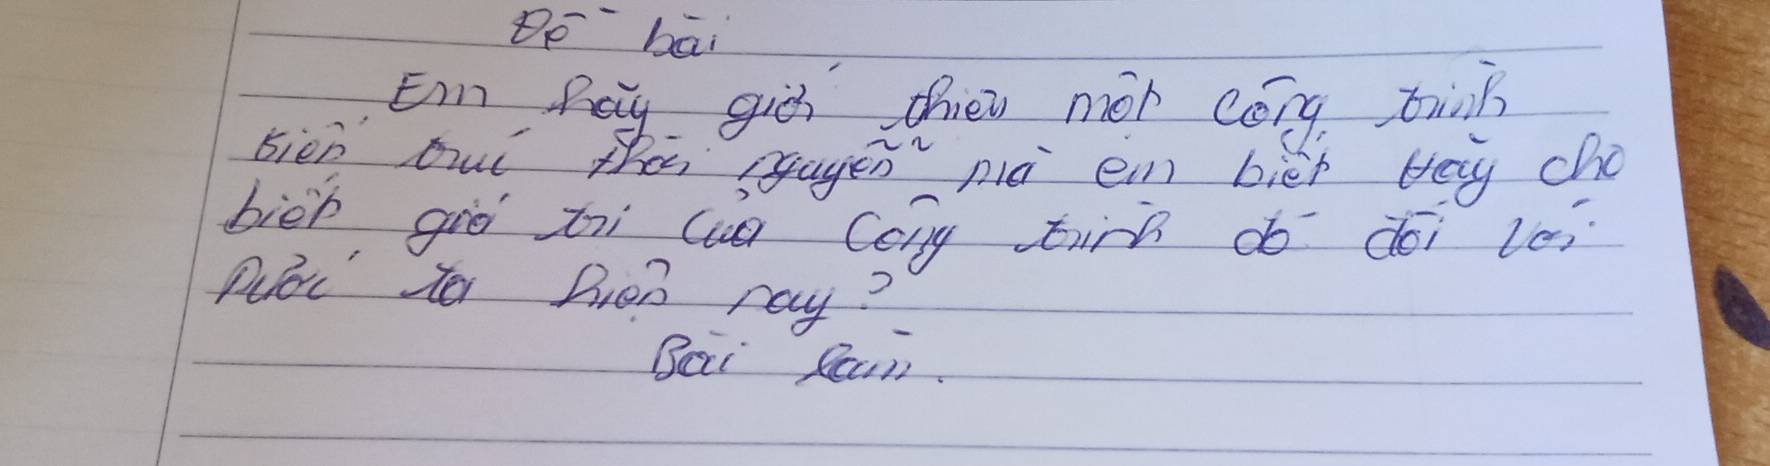 Đề bài
Em hãy giới thiệu một công trình
kiến trúc thời nguyễn mà em biết Hãy cho
biết giá trị của Công trình đó đối với
nước ta hiện nay?
Bài làm.